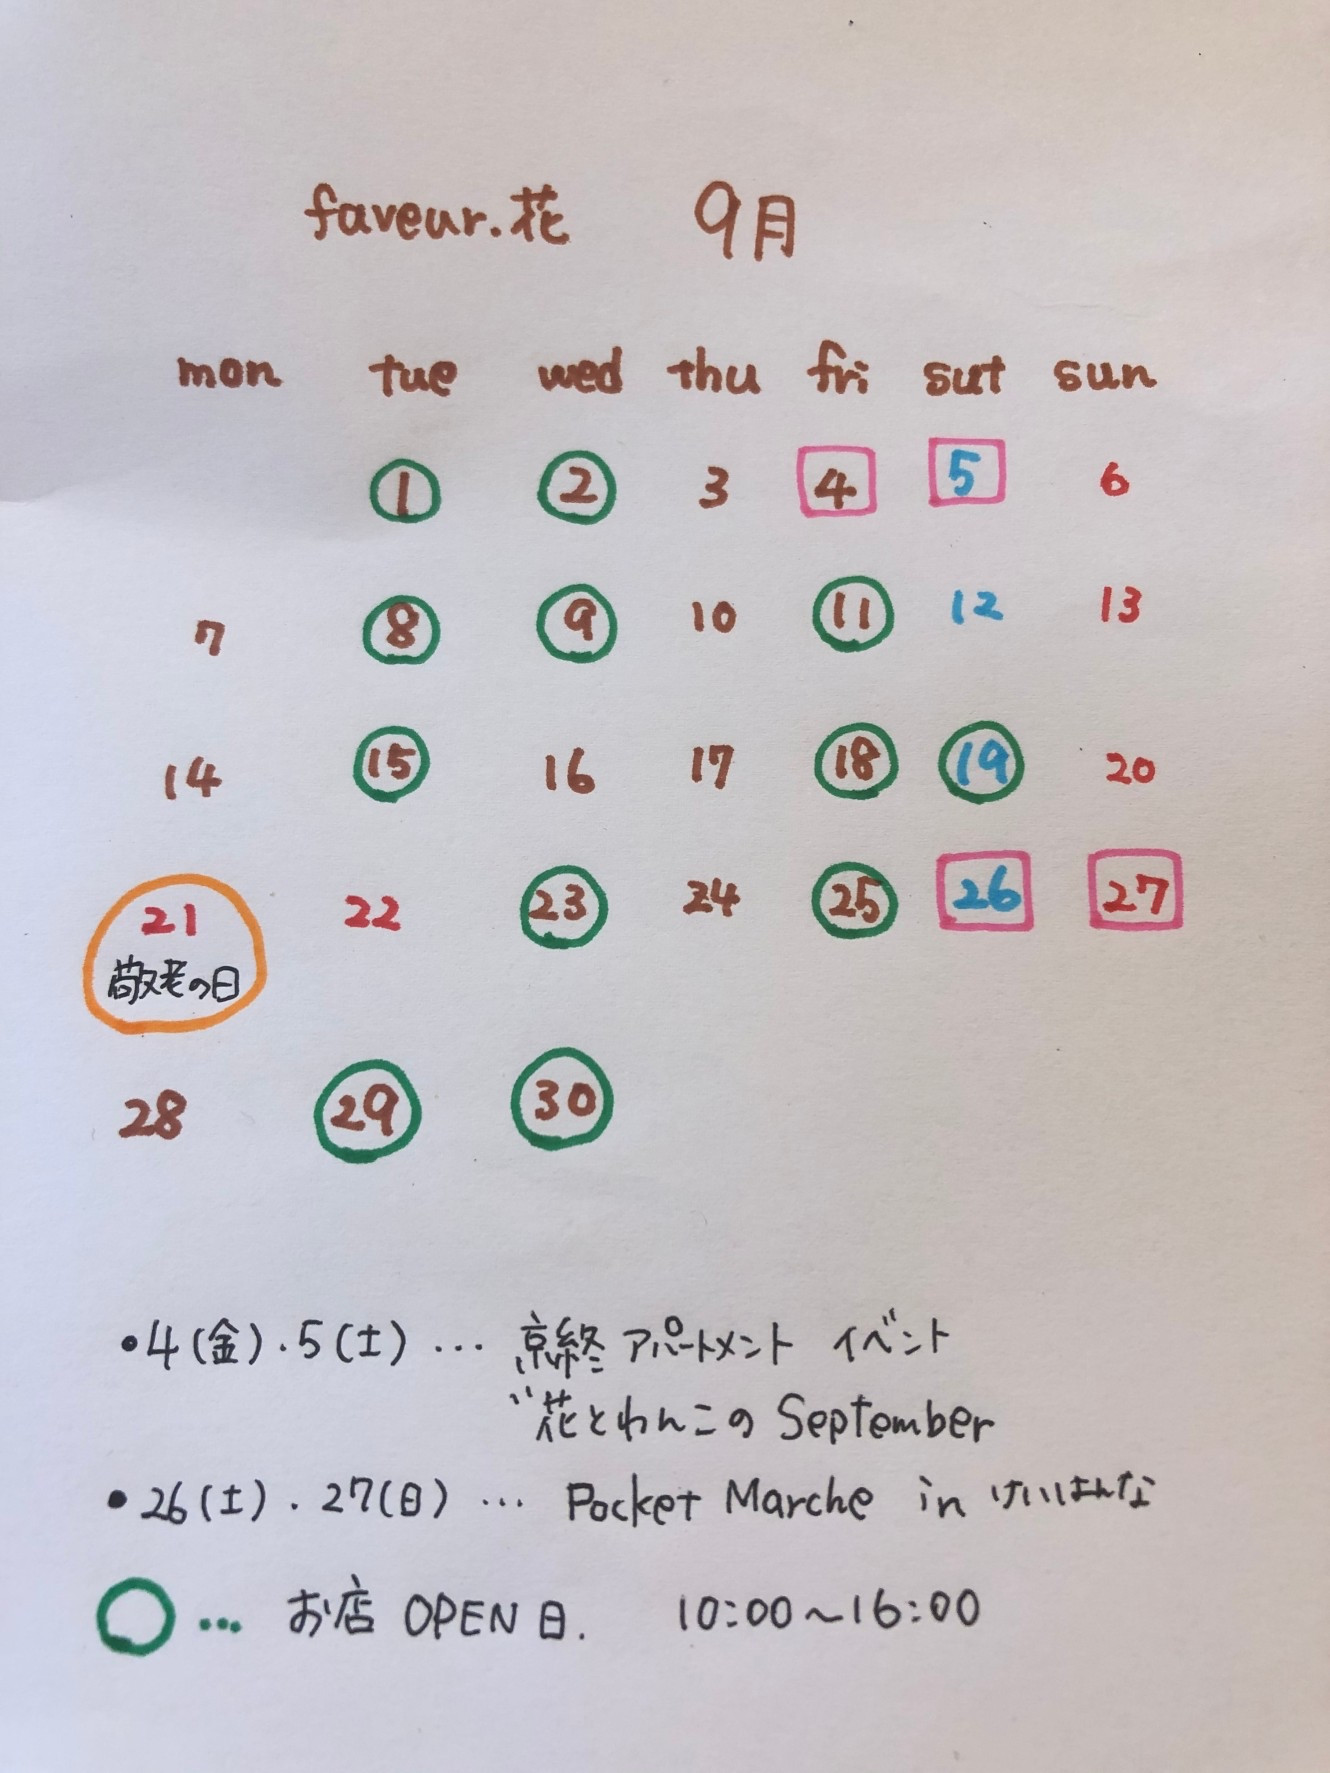 faveur.花 9月
mon tue wed thu fri sut sun
1 2 3 4 5 6
7 8 9 10 11 12 13
14 15 16 17 18 19 20
21 22 23 24 25 26 27
敬老の日
28 29 30
•4(金).5(土)… 京終アパートメント イベント
〝花とわんこの September
•26(土).27(日)… Pocket Marche in けいはんな
○… お店 OPEN日. 10:00〜16:00